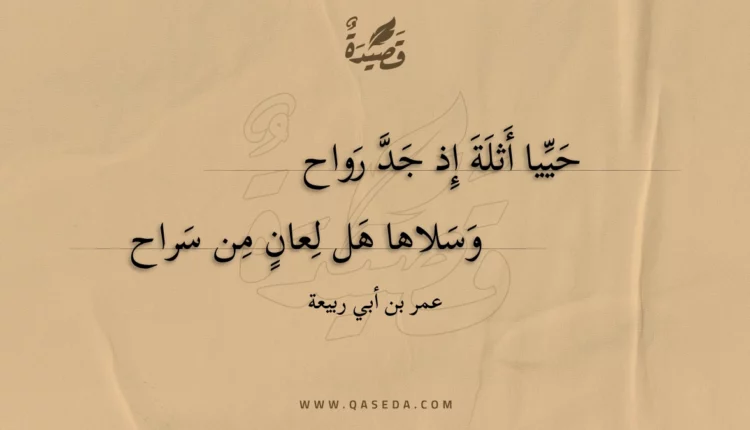 قَصِيدَةٌ
حَيِّيا أَثلَةَ إِذ جَدَّ رَواح
وَسَلاها هَل لِعانٍ مِن سَراح
عمر بن أبي ربيعة
WWW.QASEDA.COM